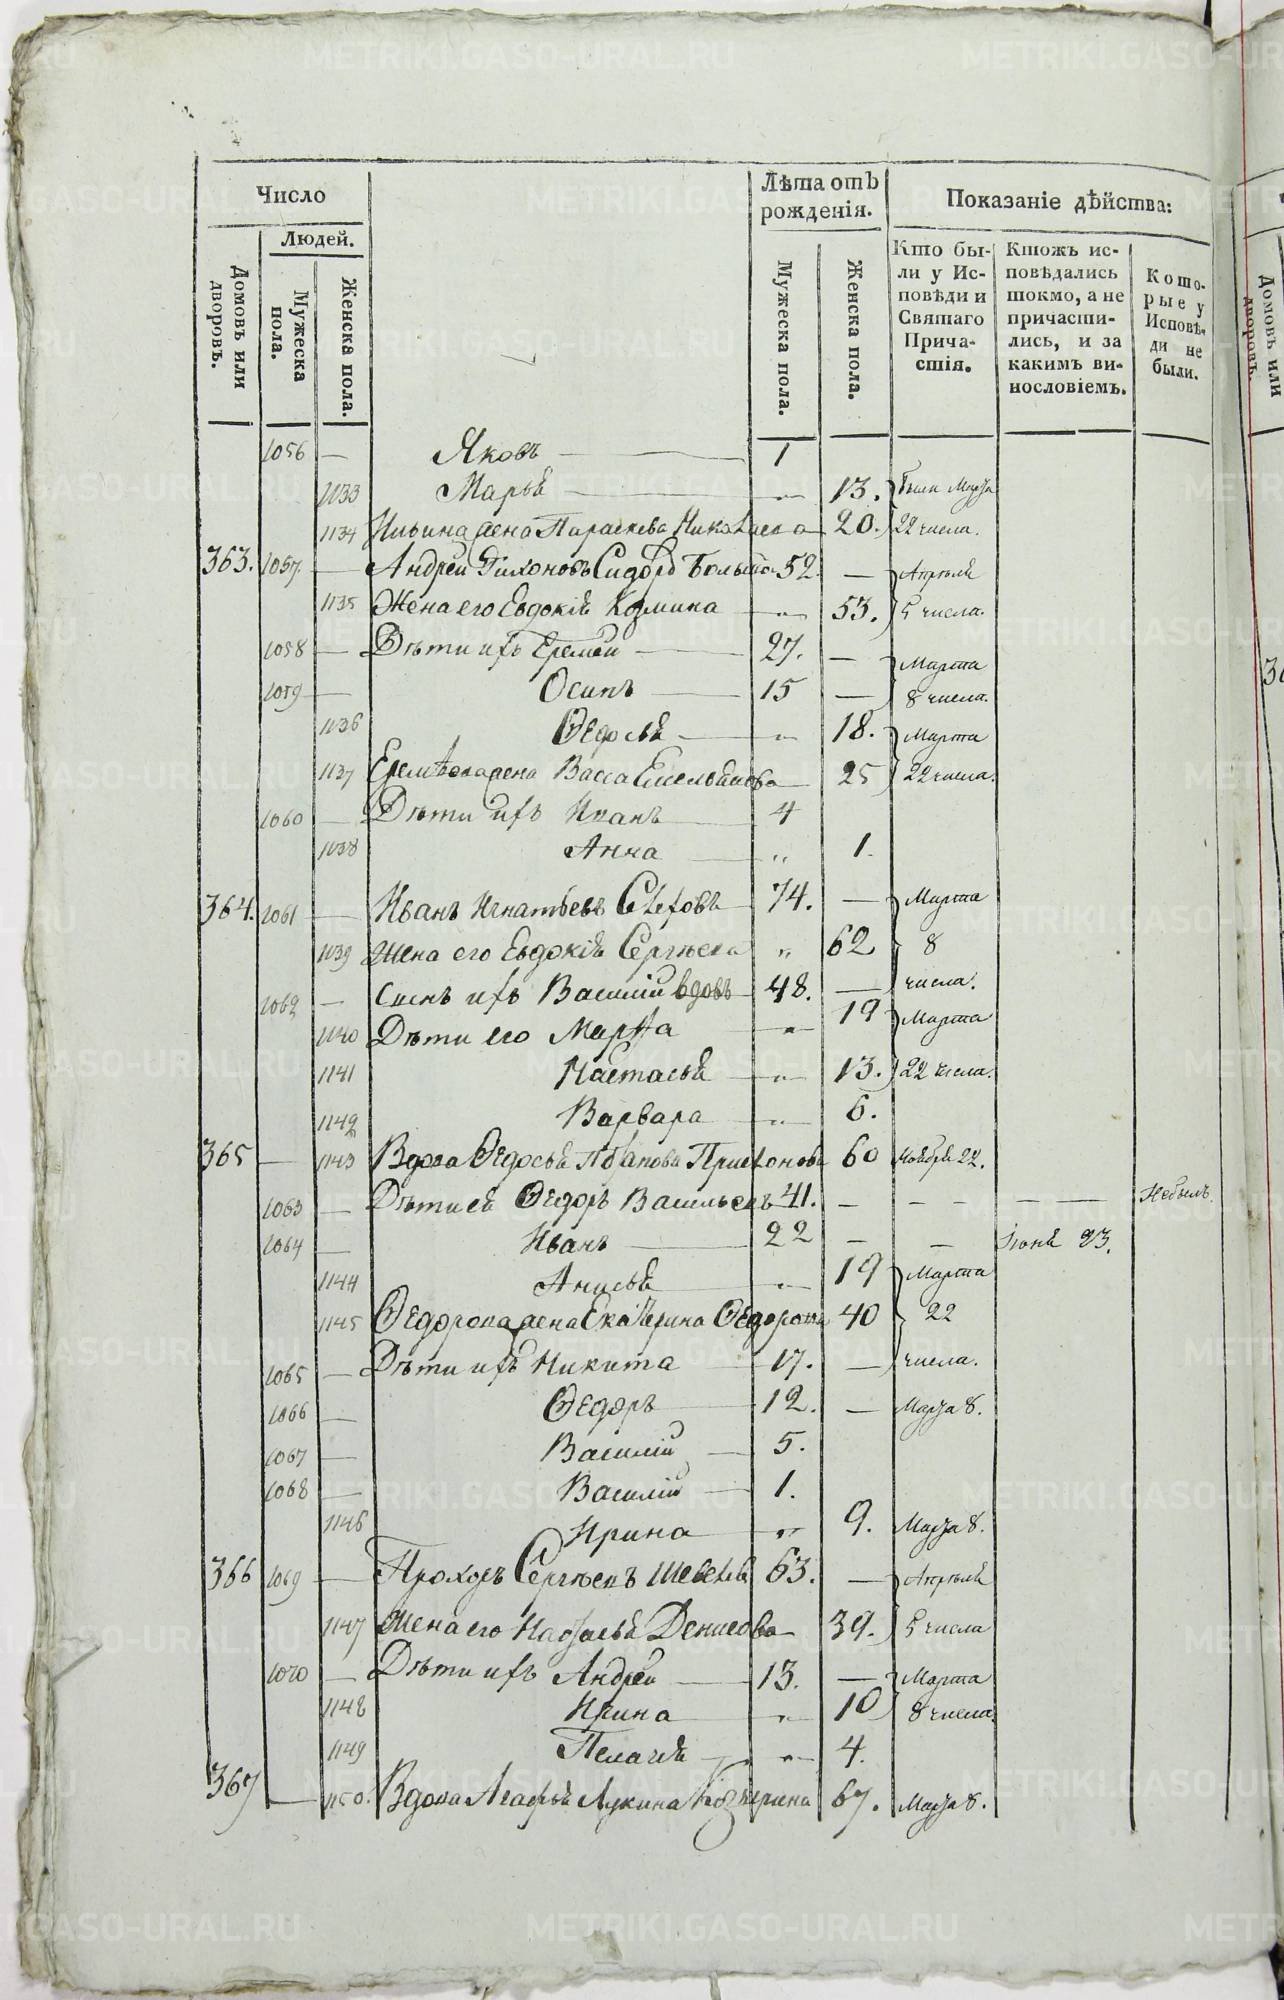 Число
Людей.
Домовъ или дворовъ.
Мужеска пола.
Женска пола.
Лѣта отъ рожденія.
Мужеска пола.
Женска пола.
Показаніе дѣйства:
Кто бы-
ли у Ис-
повѣди и
Святаго
Прича-
стія.
Ктожъ ис-
повѣдались
токмо, а не
причасти-
лись, и за
какимъ ви-
нословіемъ.
Кото-
рые у
Исповѣ-
ди не
были.
1056 — Яковъ — 1
1133 Марья — „ 13. были Марта
1134 Ильина жена Параскева Николаева — 20. 22 числа.
363. 1057 — Андрей Тихоновъ 52. — Апрѣля
1135 Жена его Евдокія Козмина — „ 53. 5 числа.
1058 — Дѣти ихъ Еремей — 27. — Марта
1059 — Осипъ — 15 — 8 числа.
1136 Ѳедосья — „ 18. Марта
1137 жена Васса Емельянова — 25 22 числа.
1060 — Дѣти ихъ Иванъ — 4
1138 Анна — „ 1.
364. 1061 — Иванъ Игнатьевъ 74. — Марта
1139 Жена его Евдокія Сергѣева „ 62 8
1062 — Сынъ ихъ Василий вдовъ 48. — числа.
1140 Дѣти его Марѳа „ 19 Марта
1141 Настасья — „ 13. 22 числа.
1142 Варвара — „ 6.
365 — 1143 Вдова Ѳедосья 60 Ноября 22.
1063 — Дѣти ей Ѳедоръ Васильевъ 41. — — — — — Небылъ.
1064 — Иванъ — 22 — — Іюня 23.
1144 Анисья „ 19 Марта
1145 Ѳедорова жена Екатерина Ѳедорова 40 22
1065 — Дѣти ихъ Никита — 17. — числа.
1066 — Ѳедоръ — 12. — Марта 8.
1067 — Василий — 5.
1068 — Василий — 1.
1146 Ирина — „ 9. Марта 8.
366 1069 — Прохоръ Сергѣевъ 63. — Апрѣля
1147 Жена его Наталья Денисова — 39. 5 числа
1070 — Дѣти ихъ Андрей — 13. — Марта
1148 Ирина „ 10 8 числа.
1149 Пелагія — „ 4.
367 — 1150. Вдова Агафья Лукина 67. Марта 8.
Домовъ или
дворовъ.
METRIKI.GASO-URAL.RU